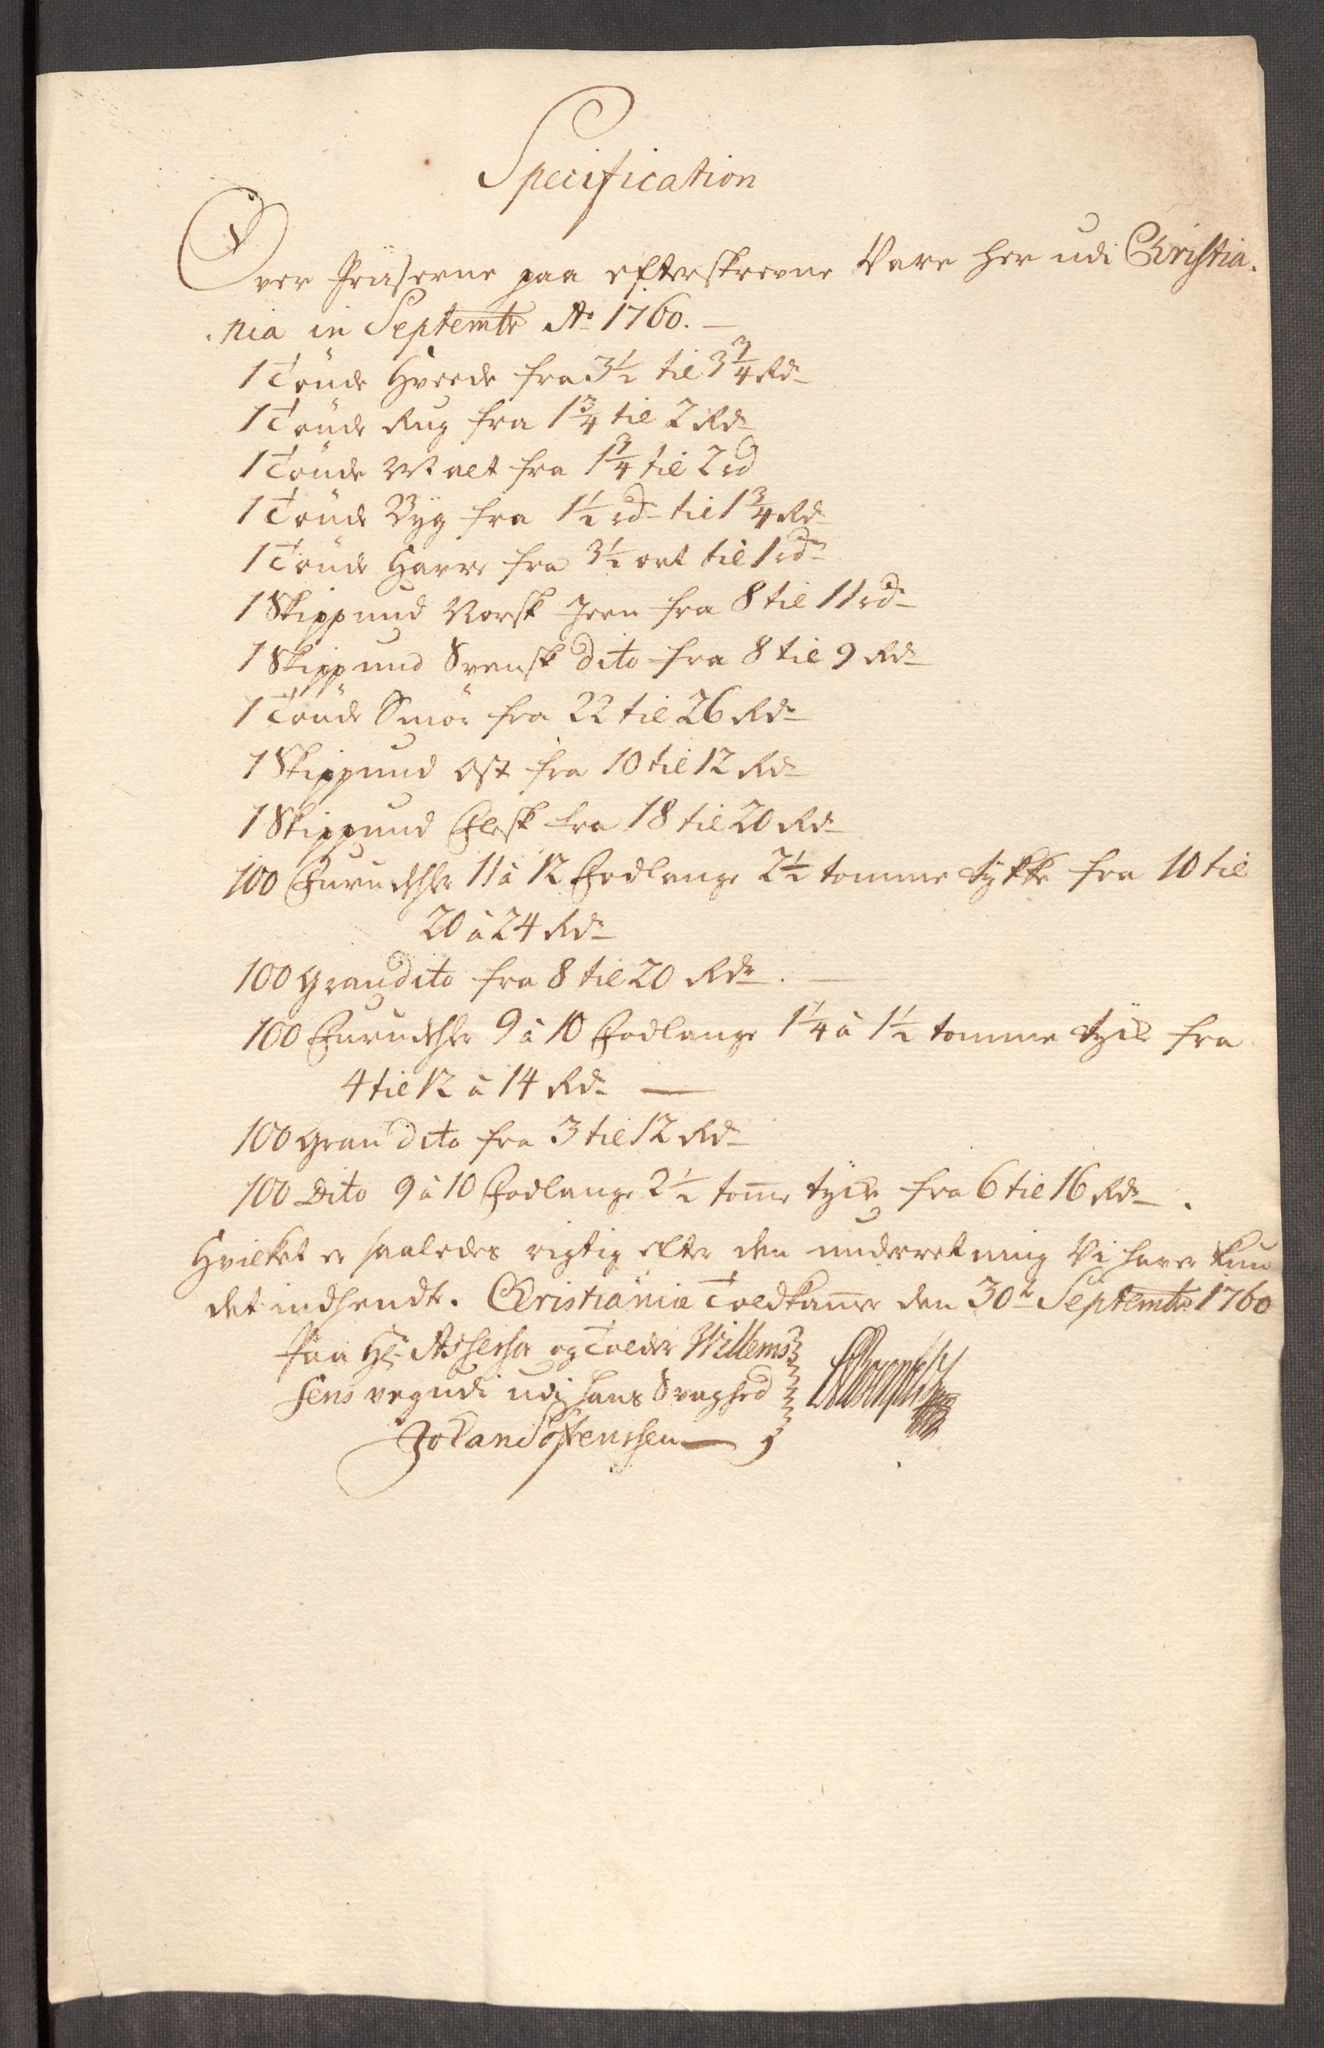 Specification
Over Priiserne paa efterskrevne Vare her udi Christia-
nia in Septembr Ao 1760. —
1 Tønde Hvede fra 3½ til 3¾ Rdr
1 Tønde Rug fra 1¾ til 2 Rdr
1 Tønde Malt fra 1¾ til 2 rd
1 Tønde Byg fra 1½ rdr til 1¾ Rdr
1 Tønde Havre fra 3½ ort til 1 rdr
1 Skippund Norsk Jern fra 8 til 11 rdr
1 Skippund Svensk dito fra 8 til 9 Rdr
1 Tønde Smör fra 22 til 26 Rdr
1 Skippund Ost fra 10 til 12 Rdr
1 Skippund Flesk fra 18 til 20 Rdr
100 Furudehler 11 à 12 Fodlange 2½ tomme tykke fra 10 til
20 à 24 Rdr
100 Gran dito fra 8 til 20 Rdr. —
100 Furudehler 9 à 10 Fodlange 1¼ à 1½ tomme tyck fra
4 til 12 à 14 Rdr —
100 Gran dito fra 3 til 12 Rdr
100 Dito 9 à 10 Fodlange 2½ tome tyck fra 6 til 16 Rdr.
Hvilket er saaledes rigtig efter den underretning Vi haver kun
det indhendte. Christiania Toldkamer den 30te Septembr 1760
Paa Hr Assessor og Tolder Willems
sens vegne udi hans Svaghed
Johan Steenssen